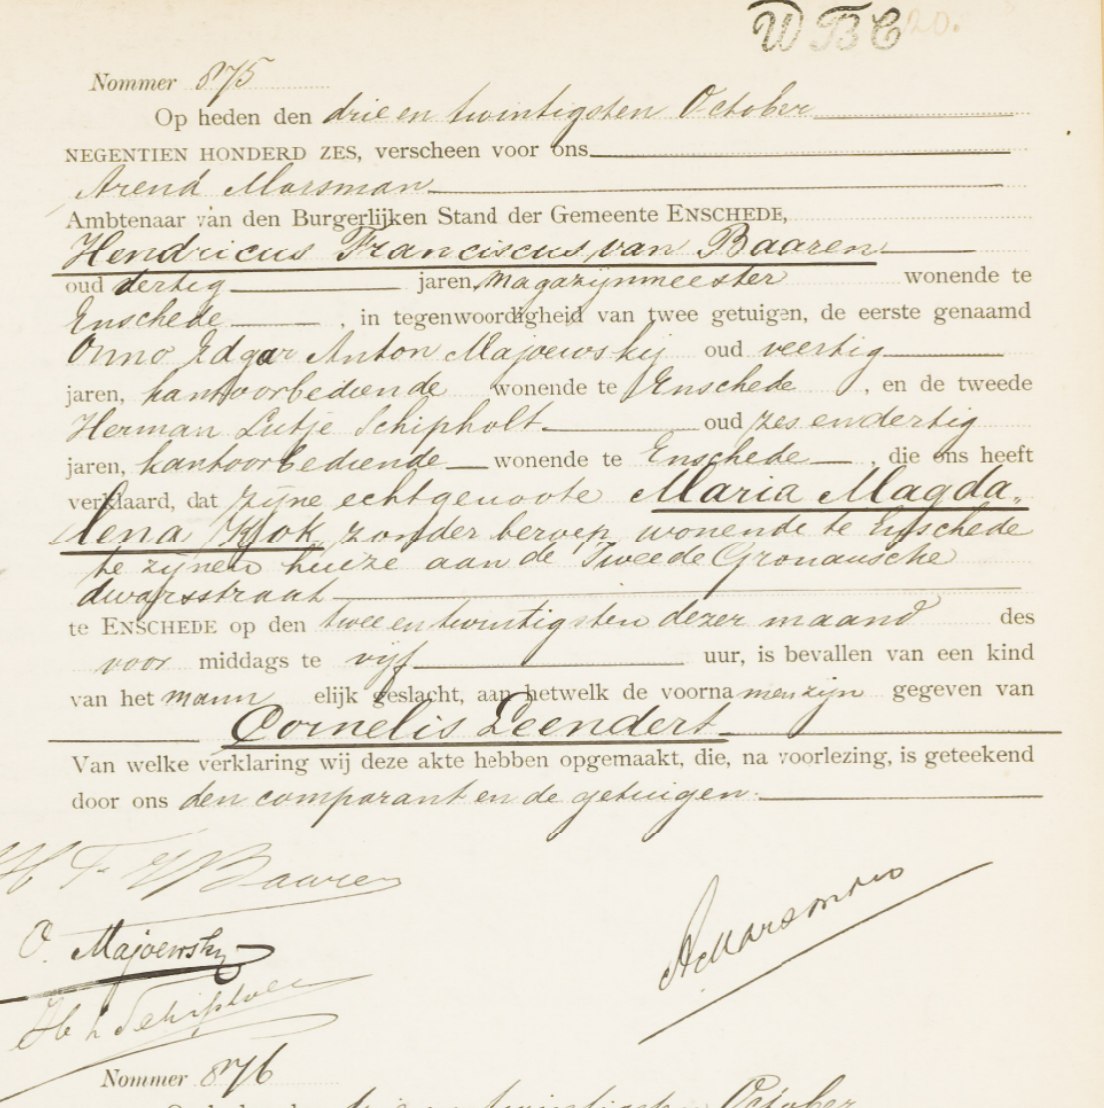 WBC 20.
Nommer 875
Op heden den drie en twintigsten October
NEGENTIEN HONDERD ZES, verscheen voor ons
Arend Marsman
Ambtenaar van den Burgerlijken Stand der Gemeente ENSCHEDE,
Hendricus Franciscus van Baaren
oud dertig jaren, magazijnmeester wonende te
Enschede , in tegenwoordigheid van twee getuigen, de eerste genaamd
Onno Edgar Anton Majoewskij oud veertig
jaren, kantoorbediende wonende te Enschede , en de tweede
Herman Lutje Schipholt oud zes en dertig
jaren, kantoorbediende wonende te Enschede , die ons heeft
verklaard, dat zijne echtgenoote Maria Magda„
lena Klok, zonder beroep, wonende te Enschede
te zijnen huize aan de Tweede Gronausche
dwarsstraat
te ENSCHEDE op den twee en twintigsten dezer maand des
voor middags te vijf uur, is bevallen van een kind
van het mann elijk geslacht, aan hetwelk de voorna men zijn gegeven van
Cornelis Leendert
Van welke verklaring wij deze akte hebben opgemaakt, die, na voorlezing, is geteekend
door ons den comparant en de getuigen.
H F V Baaren
AMarsman
O. Majoewsky
H L Schipholt
Nommer 876
October